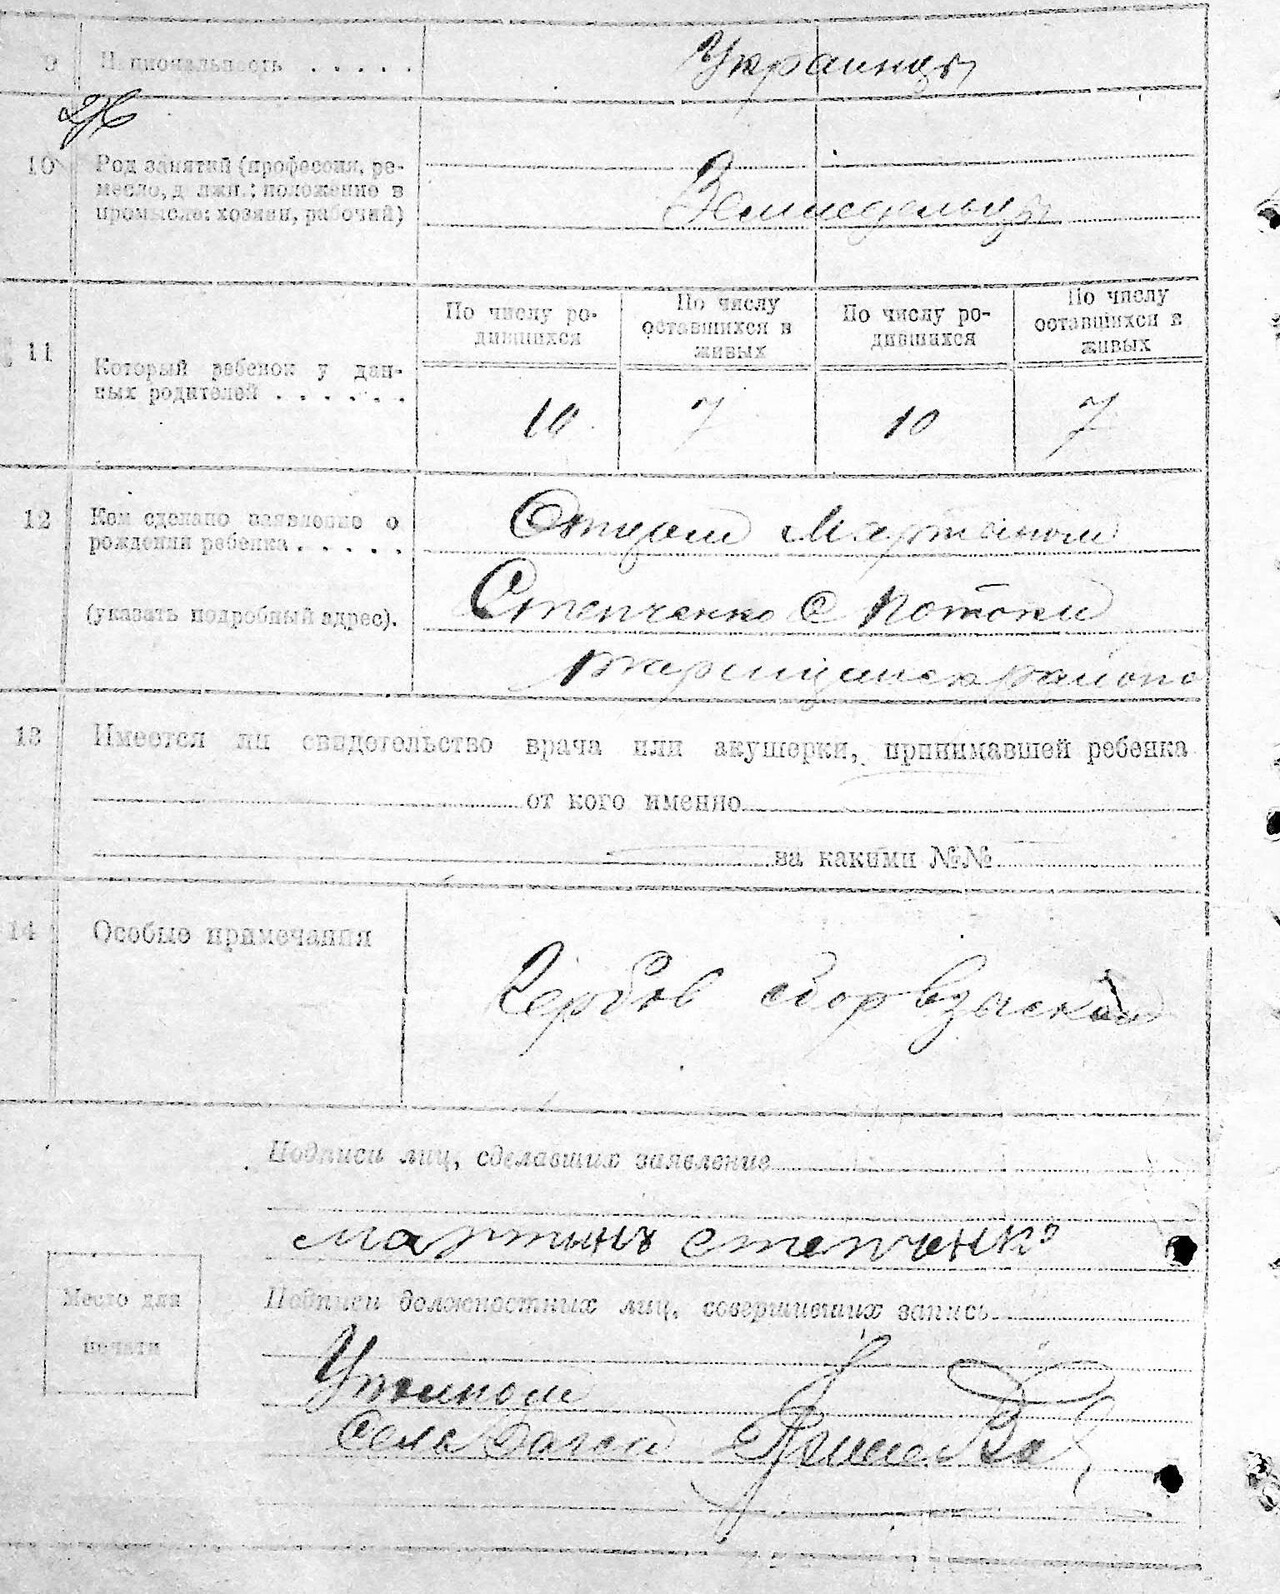 9 Национальность . . . . . Украинцы
10 Род занятий (профессия, ре-
месло, должн.; положение в
промысле: хозяин, рабочий) Земледельцы
По числу ро- По числу По числу ро- По числу
дившихся оставшихся в дившихся оставшихся в
живых живых
11 Который ребенок у дан-
ных родителей . . . . . . 10 7 10 7
12 Кем сделано заявление о Отцом Мартыном
рождении ребенка . . . . .
(указать подробный адрес). Степченко с Потоки
района
13 Имеется ли свидетельство врача или акушерки, принимавшей ребенка
от кого именно
за какими №№
14 Особые примечания
сбор взыскан
Подписи лиц, сделавших заявление
Мартынъ Степченко
Место для
печати
Подписи должностных лиц, совершивших запись